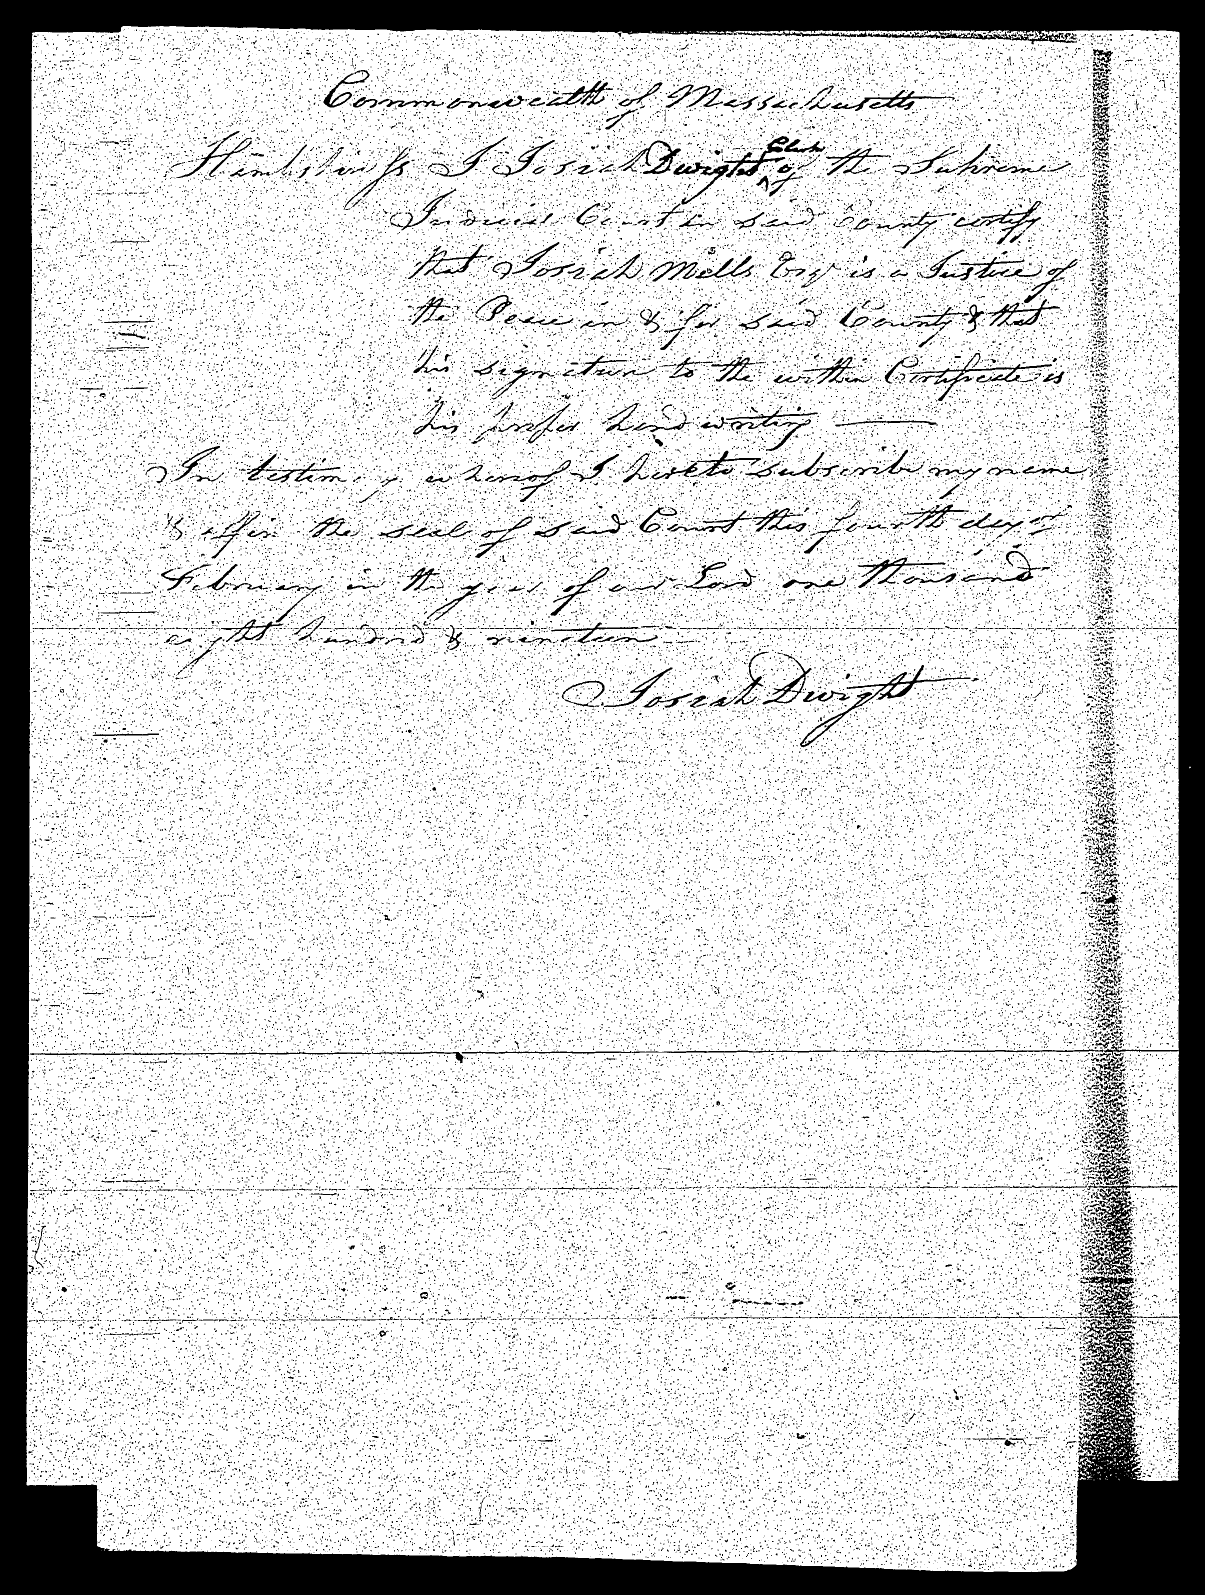 Commonwealth of Massachusetts
Hampshire ss I Josiah Dwight Clerk of the Supreme
Judicial Court in said County certify
that Josiah Mills Esqr is a Justice of
the Peace in & for said County & that
his signature to the within Certificate is
his proper hand writing
In testimony whereof I hereto subscribe my name
& affix the seal of said Court this fourth day of
February in the year of our Lord one thousand
eight hundred & nineteen
Josiah Dwight